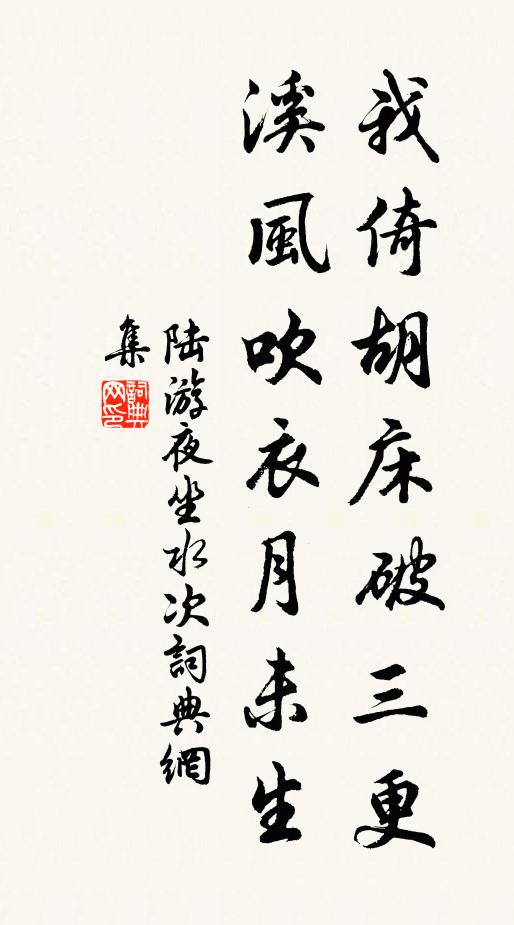 我倚胡床破三更
溪風吹衣月未生
陆游夜坐水次詞典網
集
詞典網印